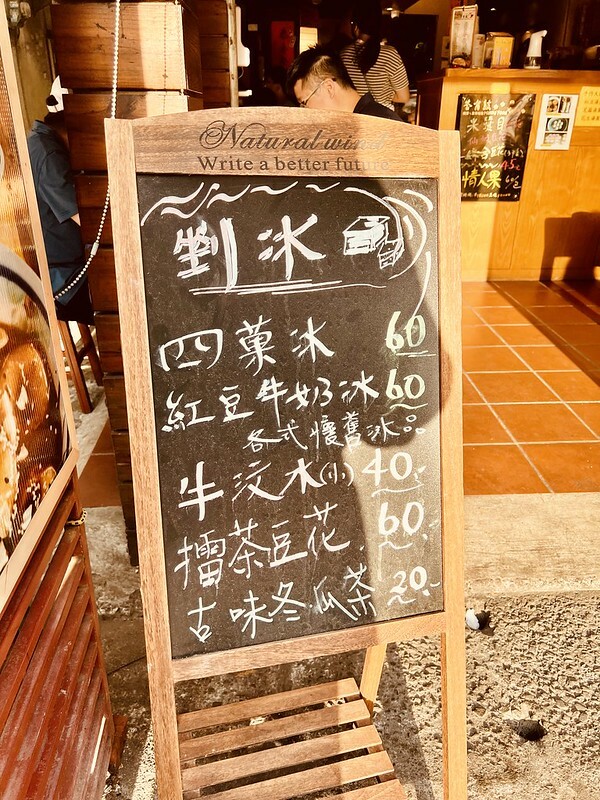 Natural wine
Write a better future
剉冰
四菓冰 60
紅豆牛奶冰 60
各式懷舊冰品
牛汶水(小) 40
擂茶豆花 60
古味冬瓜茶 20
米篩目
情人果